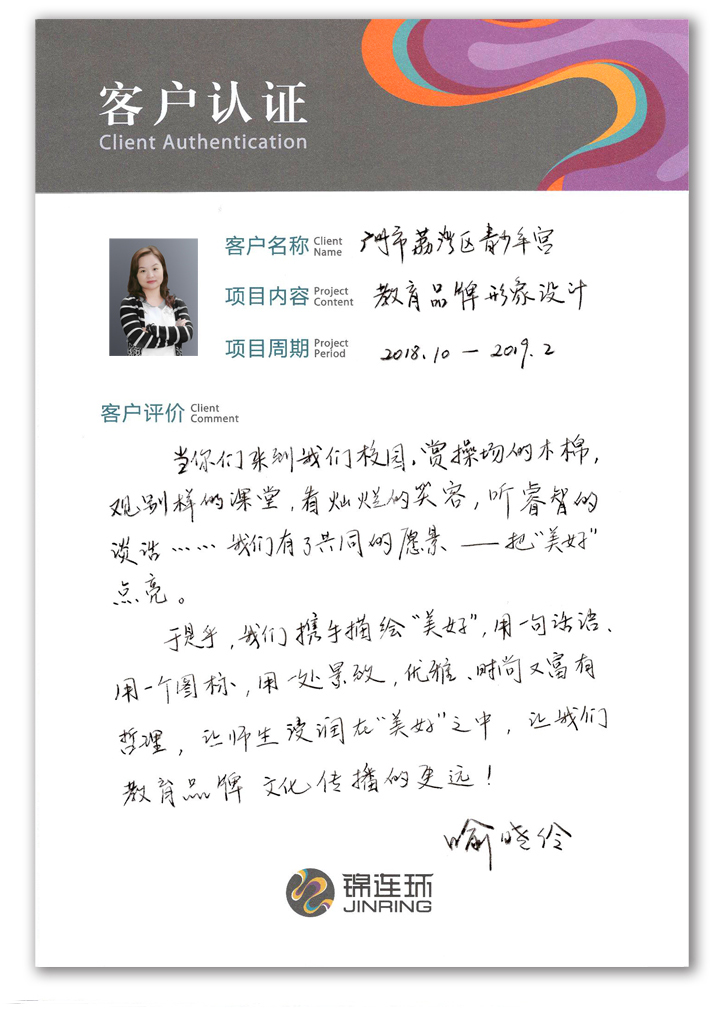 客户认证
Client Authentication
客户名称 Client Name 广州市荔湾区青少年宫
项目内容 Project Content 教育品牌形象设计
项目周期 Project Period 2018.10 — 2019.2
客户评价 Client Comment
当你们来到我们校园，赏操场的木棉，
观别样的课堂，看灿烂的笑容，听睿智的
谈话……我们有了共同的愿景——把“美好”
点亮。
于是乎，我们携手描绘“美好”，用一句话语、
用一个图标，用一处景致，优雅、时尚又富有
哲理，让师生浸润在“美好”之中，让我们
教育品牌文化传播的更远！
喻晓伶
锦连环
JINRING